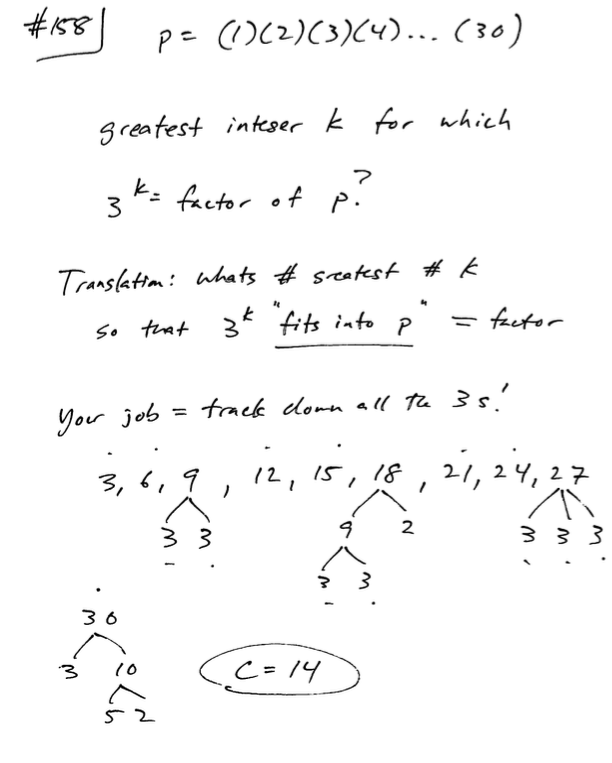 #158
p = (1)(2)(3)(4)... (30)
greatest integer k for which
3^k = factor of p?
Translation: whats # greatest # k
so that 3^k "fits into p" = factor
Your job = track down all the 3s!
3, 6, 9, 12, 15, 18, 21, 24, 27
3 3 9 2 3 3 3
3 3
30
3 10 C = 14
5 2